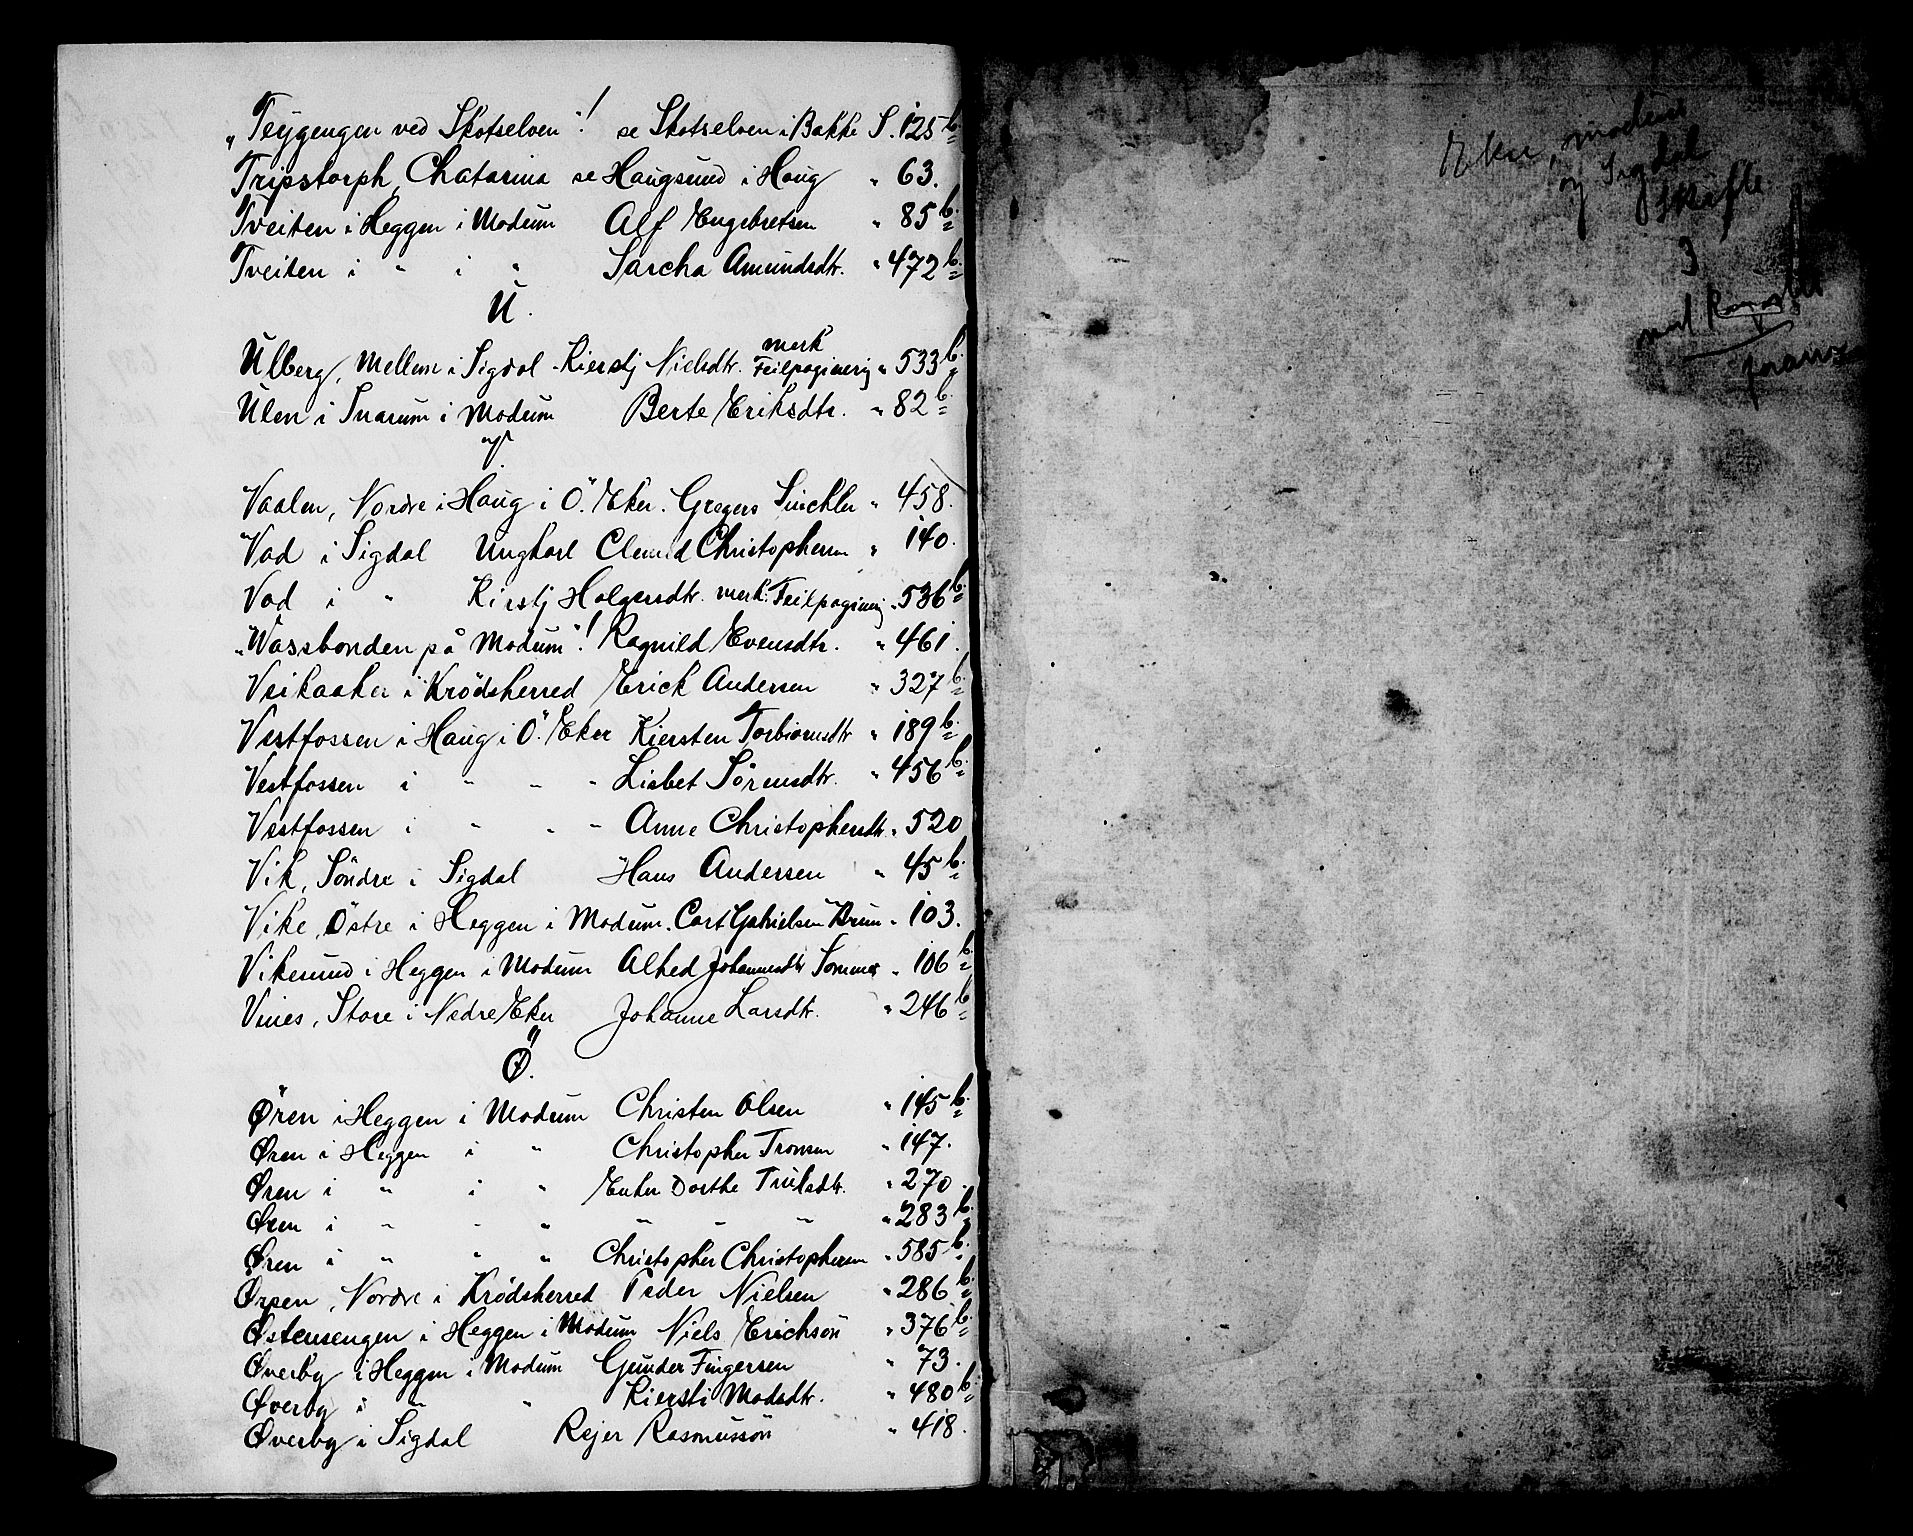 „Teygengen ved Skotselven“! se Skotselven i Bakke S. 125 b.
Tripstorph, Chatarina se Haugsund i Haug " 63.
Tveiten i Heggen i Modum Alf Engebretsen " 85 b.
Tveiten i " i " Sarcha Amundsdtr. " 472 b.
U.
Ulberg, Mellem i Sigdal Kierstj Nielsdtr. merk Feilpaginerig " 533 b.
Ulen i Snarum i Modum Berte Eriksdtr. " 82 b.
V
Vaalen, Nordre i Haug i Ö. Eker. Gregers Sinchler " 458.
Vad i Sigdal Ungkarl Clemed Christophersen " 140.
Vad i " Kirstj Holgersdtr. merk: Feilpaginerig " 536 b.
„Wassbonden på Modum“! Ragnild Evensdtr. " 461.
Veikaaker i Krödsherred Erick Andersen " 327 b.
Vestfossen i Haug i Ö. Eker Kiersten Torbiornsdtr " 189 b.
Vestfossen i " " " Lisbet Sörensdtr. " 456 b.
Vestfossen i " " " Anne Christophersdtr. " 520
Vik, Söndre i Sigdal Hans Andersen " 45 b.
Vike, Östre i Heggen i Modum. Cort Gabrielsen Brun " 103.
Vikesund i Heggen i Modum Alhed Johannesdtr Sommer " 106 b.
Vines, Store i Nedre Eker Johanne Larsdtr. " 246 b.
Ø.
Ören i Heggen i Modum Christen Olsen " 145 b.
Øren i Heggen i " Christopher Tronsen " 147.
Øren i " i " Enker Dorthe Trulsdtr. " 270.
Øren i " " " " " " " 283 b.
Øren i " " " Christopher Christophersen " 585 b.
Ørpen, Nordre i Krödsherred Peder Nielsen " 286 b.
Østensengen i Heggen i Modum Niels Erichsön " 376 b.
Øverby i Heggen i Modum Gunder Fingersen " 73.
Øverby i " " Kiersti Madsdtr. " 480 b.
Øverby i Sigdal Rejer Rasmussön " 418.
Eker, Modum
og Sigdal
Skifte
3
med